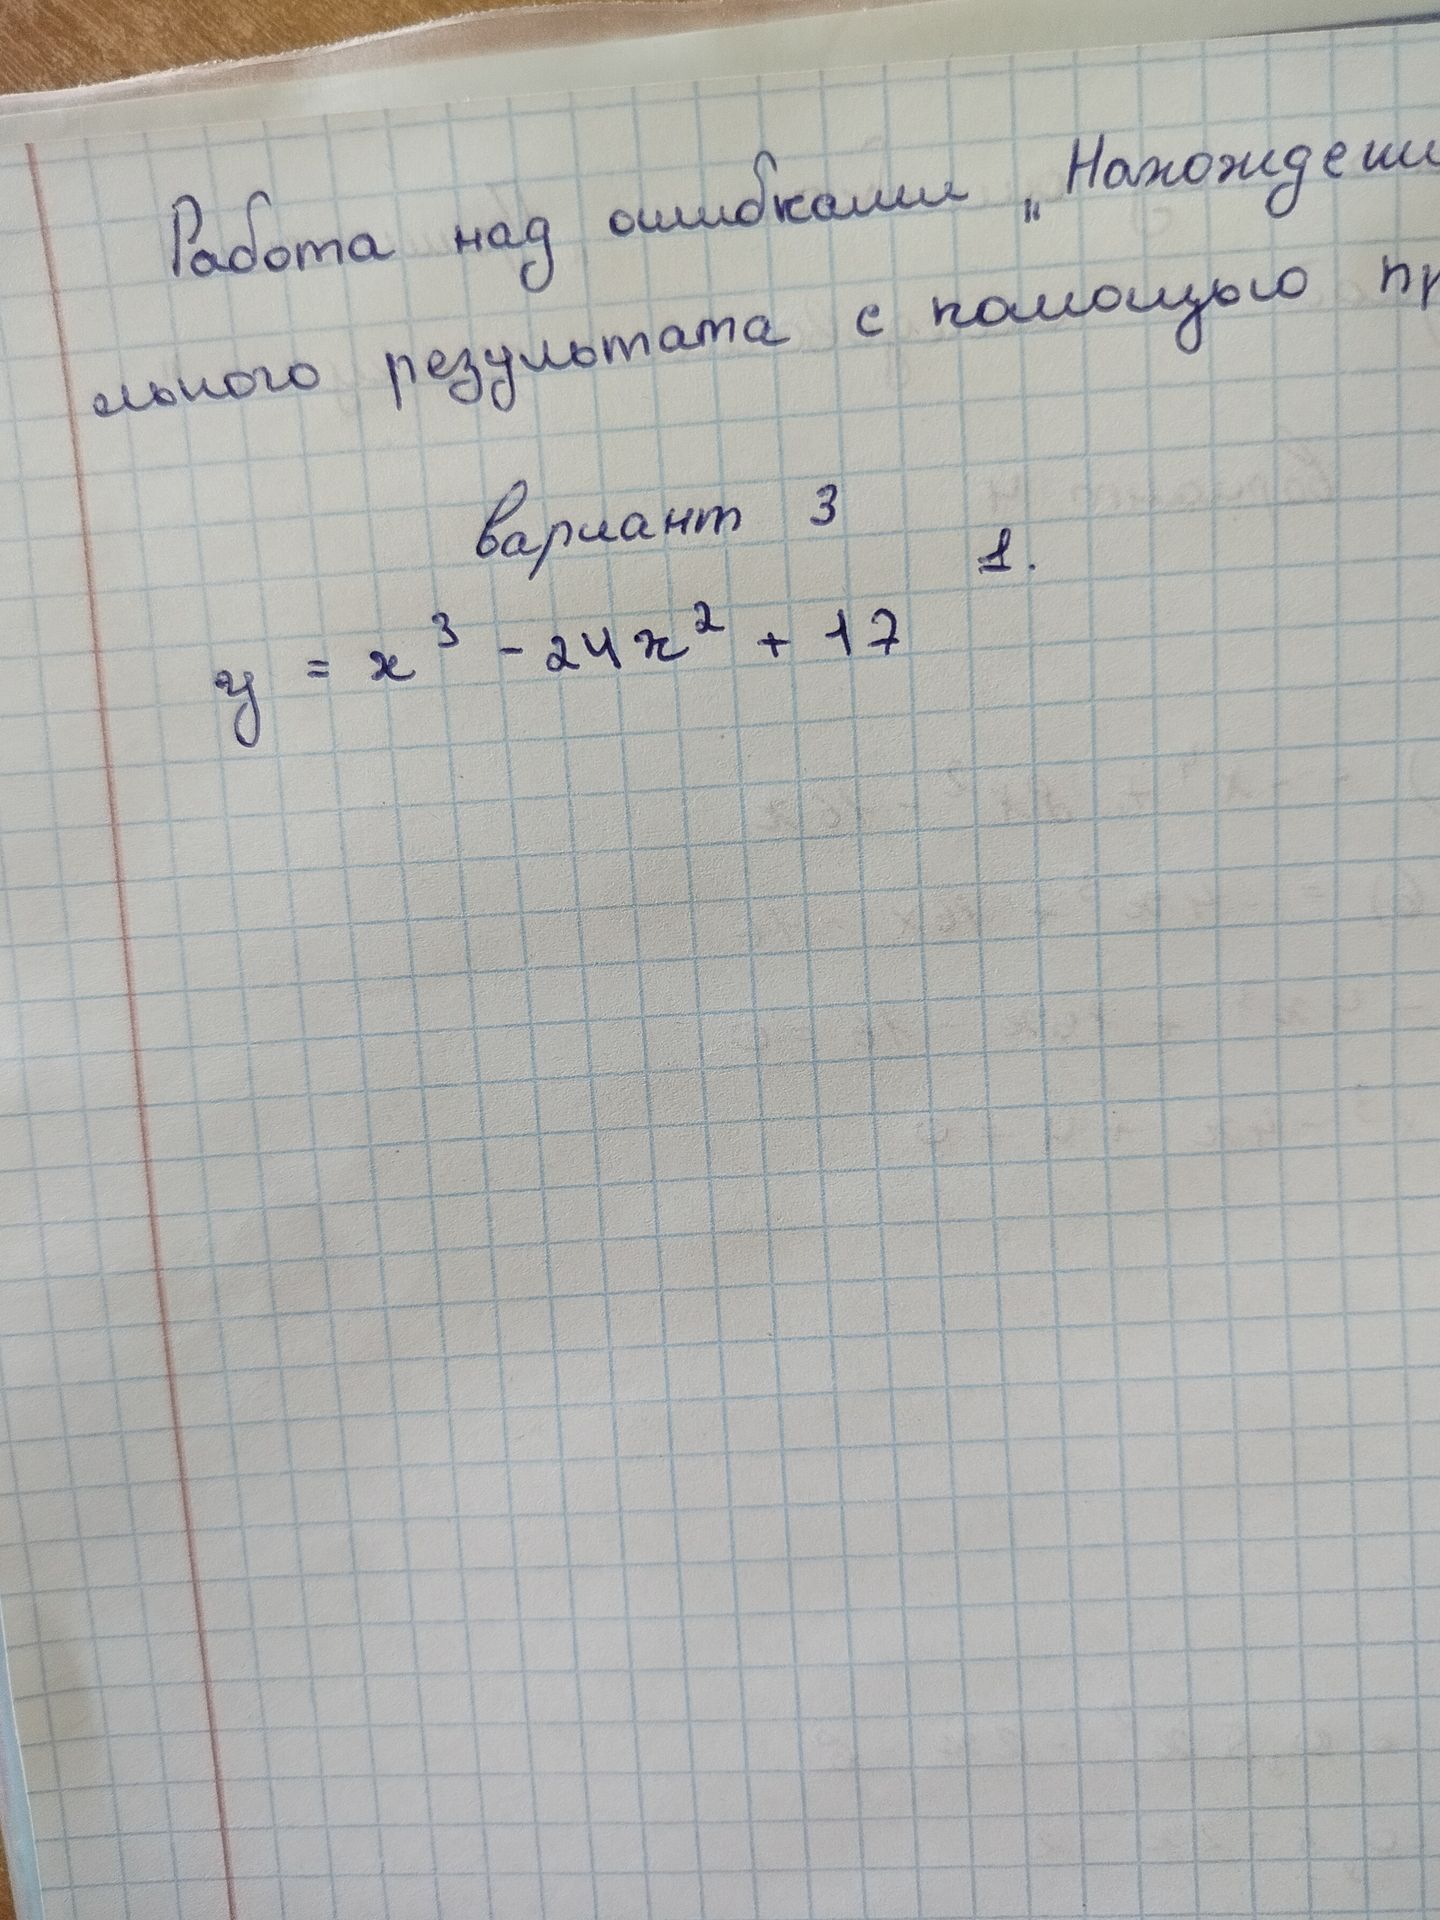 Работа над ошибками „Нахождени
льного результата с помощью пр
вариант 3
1.
y = x³ - 24x² + 17